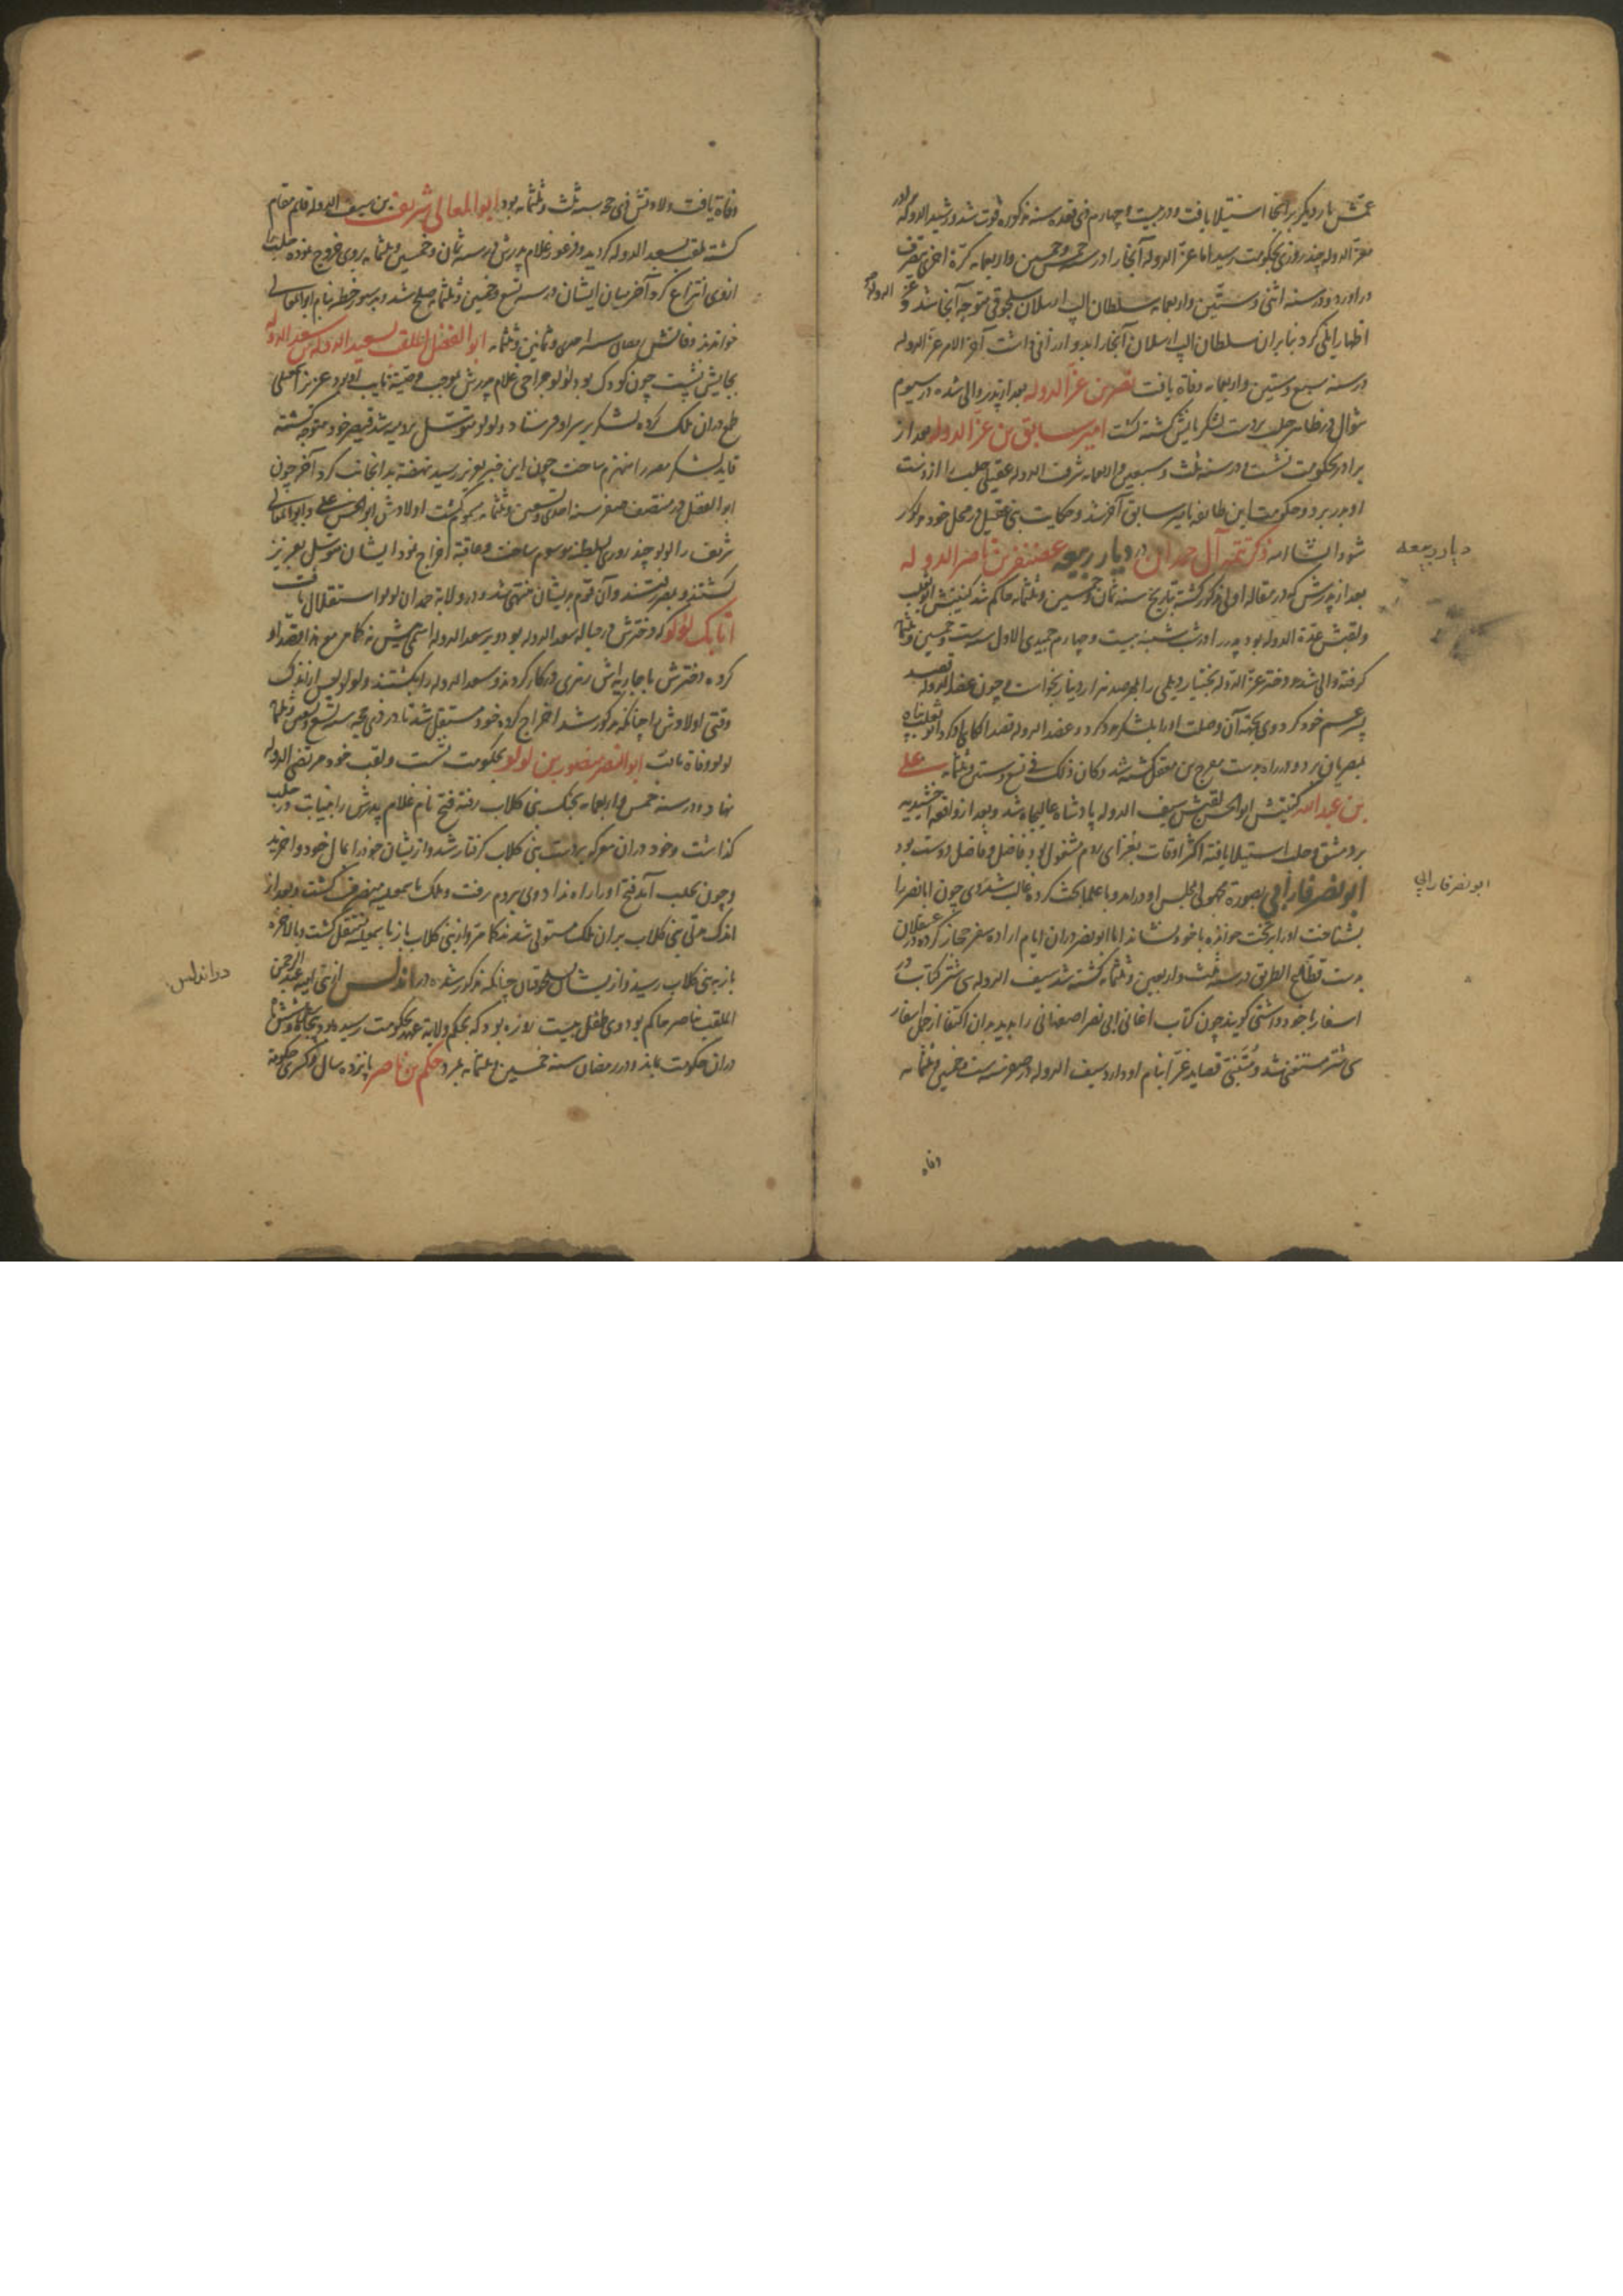 عمش بار دیگر بر آنجا استیلا یافت و در بیست و چهارم ذی قعده سنه مذکوره فوت شد و رشید الدوله برادر
معز الدوله چند روزی بحکومت رسید اما عز الدوله آنجا را در سنه خمس و خمسین و اربعمایه کرة اخری بتصرف
در آورد و در سنه اثنی و ستین و اربعمایه سلطان الپ ارسلان سلجوقی متوجه آنجا شد و عز الدوله
اظهار ایلی کرد بنابران سلطان الپ ارسلان آنجا را بدو ارزانی داشت آخر الامر عز الدوله
در سنه سبع و ستین و اربعمایه وفاة یافت نصر بن عز الدوله بعد از پدر والی شده در سیوم
شوال در ظاهر حلب بر دست لشکریانش کشته گشت امیر سابق بن عز الدوله بعد از
برادر بحکومت نشست و در سنه ثلث و سبعین و اربعمایه شرف الدوله عقیلی حلب را از دست
او بدر برد و حکومت این طائفه بامیر سابق آخر شد و حکایت بنی عقیل در محل خود مذکور
شود انشا الله ذکر تتمه آل حمدان در دیار ربیعه غضنفر بن ناصر الدوله
بعد از پدرش که در مقاله اولی مذکور گشته بتاریخ سنه ثمان و خمسین و ثلثمایه حاکم شد کنیتش ابو تغلب
ولقبش عدة الدوله بود پدر را در شب شنبه بیست و چهارم جمیدی الاول سنه ست و خمسین و ثلثمایه
گرفته والی شده و دختر عز الدوله بختیار دیلمی را بمهر صد هزار دینار بخواست و چون عضد الدوله قصد
پسر عم خود کرد وی بجهة آن وصلت او را بلشکر مدد کرد و عضد الدوله قصد او کرد ابو تغلب پناه
بمصریان برد و در راه بدست مفرج بن معقل کشته شد و کان ذلک فی تسع و ستین و ثلثمایه علی
بن عبد الله کنیتش ابو الحسن لقبش سیف الدوله پادشاه عالیجاه شد و بعد از واقعه اخشیدیه
بر دمشق و حلب استیلا یافته اکثر اوقات بغزای روم مشغول بود فاضل و فاضل دوست بود
ابو نصر فارابی بصورة مجهول بمجلس او در آمد و با علما بحث کرده غالب شد وی چون ابا نصر را
بشناخت او را بر تخت خوانده با خود نشاند اما ابو نصر در آن ایام اراده سفر حجاز کرده در عسقلان
بدست قطاع الطریق در سنه ثلث و اربعین و ثلثمایه کشته شد سیف الدوله سی شتر کتاب در
اسفار با خود داشتی گویند چون کتاب اغانی ابی نصر اصفهانی را بدید بدان اکتفا از حمل اسفار
سی شتر مستغنی شد و متنبی قصاید غرا بنام او دارد سیف الدوله در صفر سنه ست و خمسین و ثلثمایه
وفاة
دیار ربیعه
ابو نصر فارابی
وفاة یافت ولادتش ذی حجه سنه ثلث و ثلثمایه بود ابو المعالی شریف بن سیف الدوله قایم مقام
گشته ملقب بسعد الدوله گردید و قرعویه غلام پدرش در سنه ثمان و خمسین و ثلثمایه بر وی خروج نموده حلب را
از وی انتزاع کرد آخر میان ایشان در سنه تسع و خمسین و ثلثمایه صلح شد و بدستور خطبه بنام ابو المعالی
خواندند وفاتش رمضان سنه احدی و ثمانین و ثلثمایه ابو الفضل الملقب بسعید الدوله بن سعد الدوله
بجایش نشست چون کودک بود لولو جراحی غلام پدرش بموجب وصیة نایب او بود عزیز اسمعیلی
طمع در آن ملک کرده لشکر بر سر او فرستاد و لولو متوسل برومیه شد قیصر خود متوجه گشته
قاید لشکر مصر را منهزم ساخت چون این خبر بعزیز رسید نهضة بدانجانب کرد آخر چون
ابو الفضل در منتصف صفر سنه احدی و تسعین و ثلثمایه مسموم گشت اولادش ابو الحسن علی و ابو المعالی
شریف را لولو چند روزی بسلطنة موسوم ساخت و عاقبة اخراج نمود ایشان متوسل بعزیز
گشتند و بمصر رفتند و آن قوم بدیشان منتهی شد و در ولایة حمدان لولو استقلال یافت
اتابک لولو که دخترش در حباله سعد الدوله بود و پسر سعد الدوله
کرده دخترش با جاریه اش زهری در کار کردند و سعد الدوله را بکشتند و لولو پس از اندک
وقتی اولادش را چنانکه مذکور شد اخراج کرده خود مستقل شد تا در ذی حجه سنه تسع و تسعین و ثلثمایه
لولو وفاة یافت ابو النصر منصور بن لولو بحکومت نشست و لقب خود مرتضی الدوله
نهاد و در سنه خمس و اربعمایه بجنگ بنی کلاب رفته فتح نام غلام پدرش را بنیابت در حلب
گذاشت و خود در آن معرکه بدست بنی کلاب گرفتار شد و از ایشان خود را بمال خود وا خرید
و چون بحلب آمد فتح او را راه نداد وی بروم رفت و ملک باسمعیلیه منصرف گشت و بعد از
اندک مدتی بنی کلاب بر آن ملک مستولی شدند کما مر و از بنی کلاب باز باسمعیلیه منتقل گشت و بالاخره
باز به بنی کلاب رسید و از ایشان بسلجوقیان چنانکه مذکور شد در اندلس از بنی امیه عبد الرحمن
الملقب بناصر حاکم بود وی طفل بیست روزه بود که بحکم ولایة عهد بحکومت رسیده بود پنجاه و شش سال
در آن حکومت بماند و در رمضان سنه خمسین و ثلثمایه بمرد حکم بن ناصر پانزده سال و کسری حکومة
در اندلس